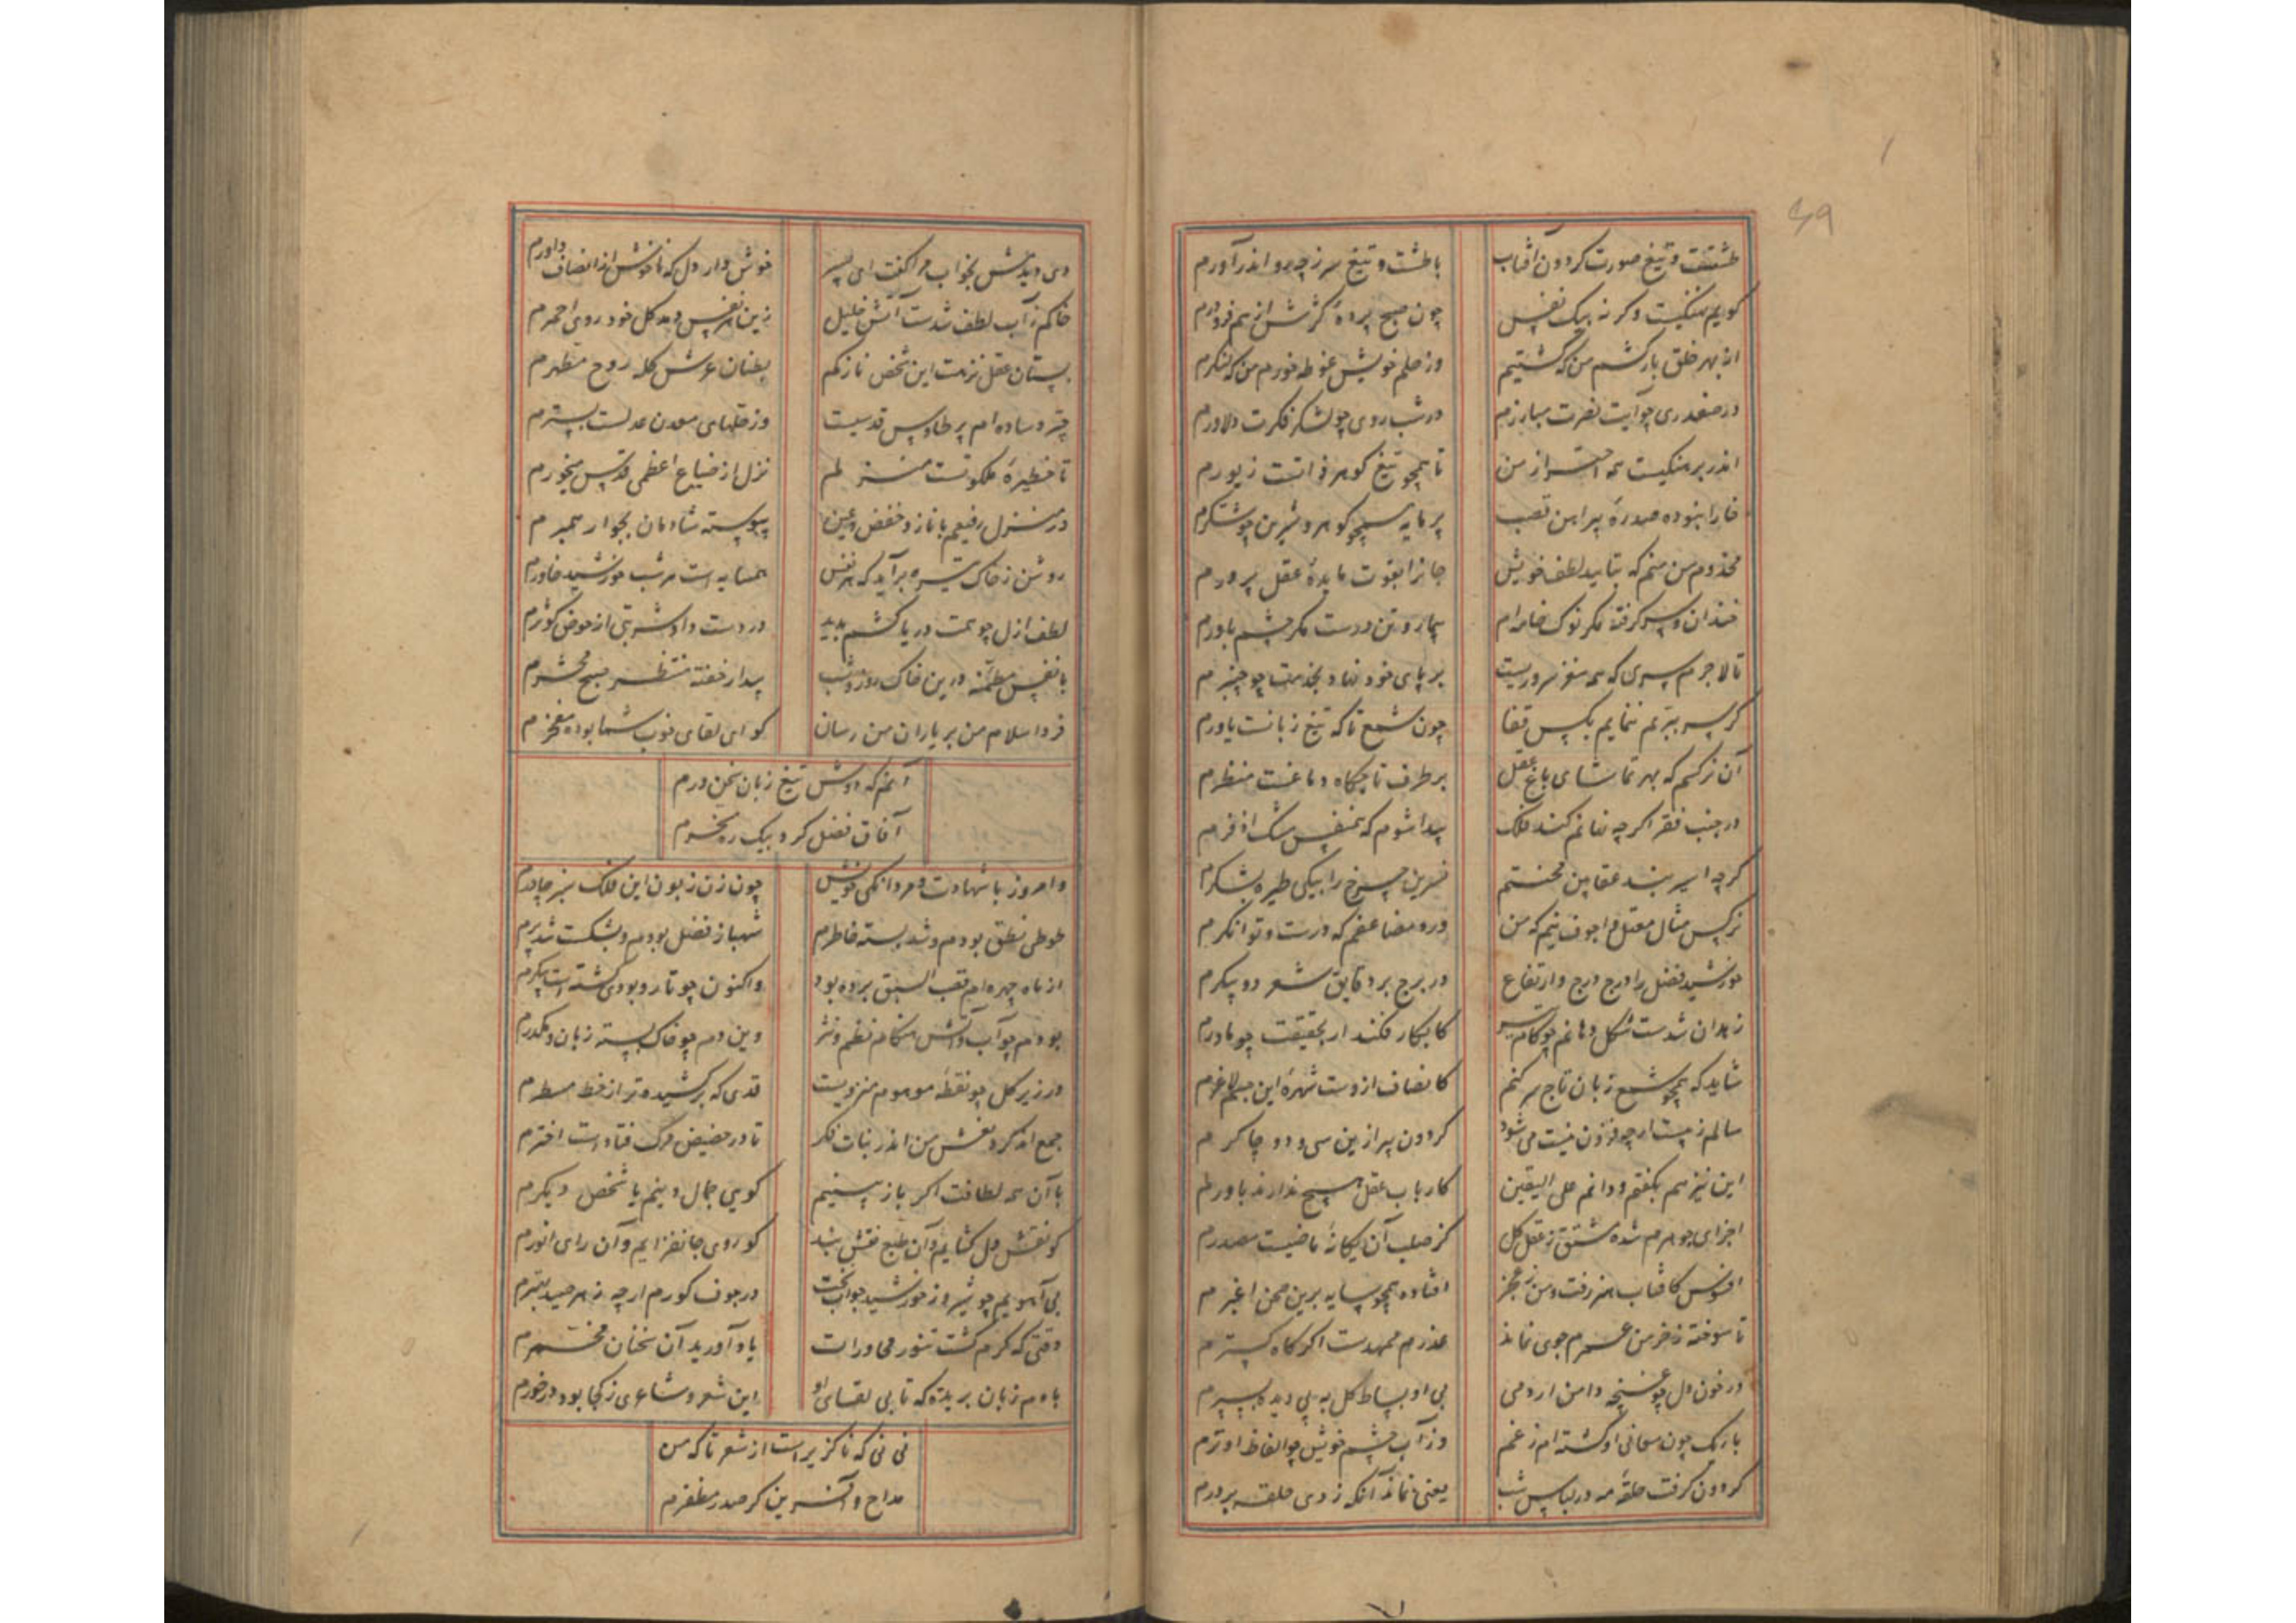 طشتست و تیغ صورت گردون و آفتاب باطشت و تیغ سر ز چه رو اندر آورم
کویم سنکیست وکر نه بیک نفس چون صبح پردهٔ کژش از هم فرو درم
از بهر خلق بارکشم من که کشتیم وز حلم خویش غوطه خورم من که لنکرم
در صفدری چو آیت نصرت مبارزم در شب روی چو لشکر فکرت دلاورم
اندر برهنکیست همه احتراز من تا همچو تیغ کوهر ذاتست زیورم
خارا نبوده صدرهٔ پیراهن قصب پر مایه همچو کوهر و شیرین چو شکرم
مخدوم من منم که بتایید لطف خویش جانرا بقوت مایدهٔ عقل پرورم
خندان و سر کرفته مکر نوک خامه‌ام بیمار و تن درست مکر چشم یاورم
تا لاجرم سری که همه مغز سروریست بر پای خود نهاد و بخدمت چو چنبرم
کر سر ببریم ننمایم بکس قفا چون شمع تا که تیغ زبانست یاورم
آن نرکسم که بهر تماشای باغ عقل بر طرف تاجکاه دماغست منظرم
در جنب فقر اکرچه نهانم کند فلک پیدا شوم که همنفس مشک اذفرم
کرچه اسیر بند عقابین محنتم نسرین چرخ را بیکی طیره بشکرم
نرکس مثال مقتل و اجوف نیم که من درو مضاعفم که درست و توانکرم
خورشید فضل را درج درج وارتفاع در برج بر دقایق شعر دو پیکرم
زهدان شدست شکل دهانم چو کام کابکار فکند ار بحقیقت چو مادرم
شاید که همچو شمع زبان تاج سر کنم کانصاف ازوست شهرهٔ این جسم لاغرم
سالم ز بیست ار چه فزون نیست می شود کردون پیر ازین سی و دو چاکرم
این نیز هم بکفتم و دانم علی الیقین کارباب عقل هیچ ندارند باورم
اجزای جوهرم شده مشتق ز عقل کل کز صلب آن یکانهٔ ماضیست مصدرم
افسوس کافتاب هنر رفت و من ز عجز افتاده همچو سایه برین صحن اغبرم
تا سوخته ز خرمن عمرم جوی نماند عذرم ممهدست اکر کاه کسترم
در خون دل چو غنچه دامن ار دمی بی او بساط کل به پی دیده بسپرم
باریک چون معانی او کشته‌ام ز غم وز آب چشم خویش چو الفاظ او ترم
کردون کرفت حلقهٔ مه در لباس شب یعنی نماند آنکه زدی حلقه بر درم
دی دیدمش بخواب مرا کفت ای پسر خوش دار دل که ناخوش از انصاف داورم
خاکم ز آب لطف شدست آتش خلیل زین هر نفس دمد کل خود روی احمرم
بستان عقل نزهت این شخص نازکم بطنان عرش کلهٔ روح مطهرم
چتر و ساده‌ام پر طاوس قدسیست وز حلهای معدن عدلست بسترم
تا حظیرهٔ ملکوتست منزلم نزل از ضیاع اعظمی قدس میخورم
در منزل رفیعم با ناز و خفض و عیش پیوسته شادمان بجوار همبرم
روشن ز خاک تیره برآید که هر نفس همسایه است هر شب خورشید خاورم
لطف ازل چو همت دریا کشم بدید در دست داد شربتی از حوض کوثرم
با نفس مطمئنه درین خاک روز و شب بیدار خفته منتظر صبح محشرم
فردا سلام من بر یاران من رسان کو ای لقای خوب شما بوده مفخرم
آنم که دوش تیغ زبان سخن ورم
آفاق فضل کرد بیک ره مسخرم
وامروز با شهادت و مردانکی خویش چون زن زبون این فلک سبز چادرم
طوطی نطق بودم و شد بسته خاطرم شهباز فضل بودم و بشکست شد پرم
از ماه چهره‌ام قصب السبق برده بود واکنون چو تار و پود کشته است پیکرم
بودم چو آب و آتش هنکام نظم و نثر وین دم چو خاک بسته زبان و مکدرم
در زیر کل چو نقطهٔ موهوم منزویست قدی که برکشیده تر از خط مسطرم
جمع اند کرد نعش من اندر بنات فکر تا در حضیض مرک فتادست اخترم
با آن همه لطافت اکر باز بینیم کویی جمال دینم یا شخص دیکرم
کو نقش دل کشایم و آن طبع نقش بند کو روی جانفزایم و آن رای انورم
بی آهویم چو شیر و ز خورشید خواب بخت در جوف کورم ارچه ز هر صید بهترم
وقتی که کرم کشت تنور محاورات یاد آورید آن سخنان مختصرم
بادم زبان بریده که تا بی لقای او این شعر و شاعری ز کجا بود درخورم
نی نی که ناکزیر است از شعر تا که من
مداح و آفرین کر صدر مظفرم